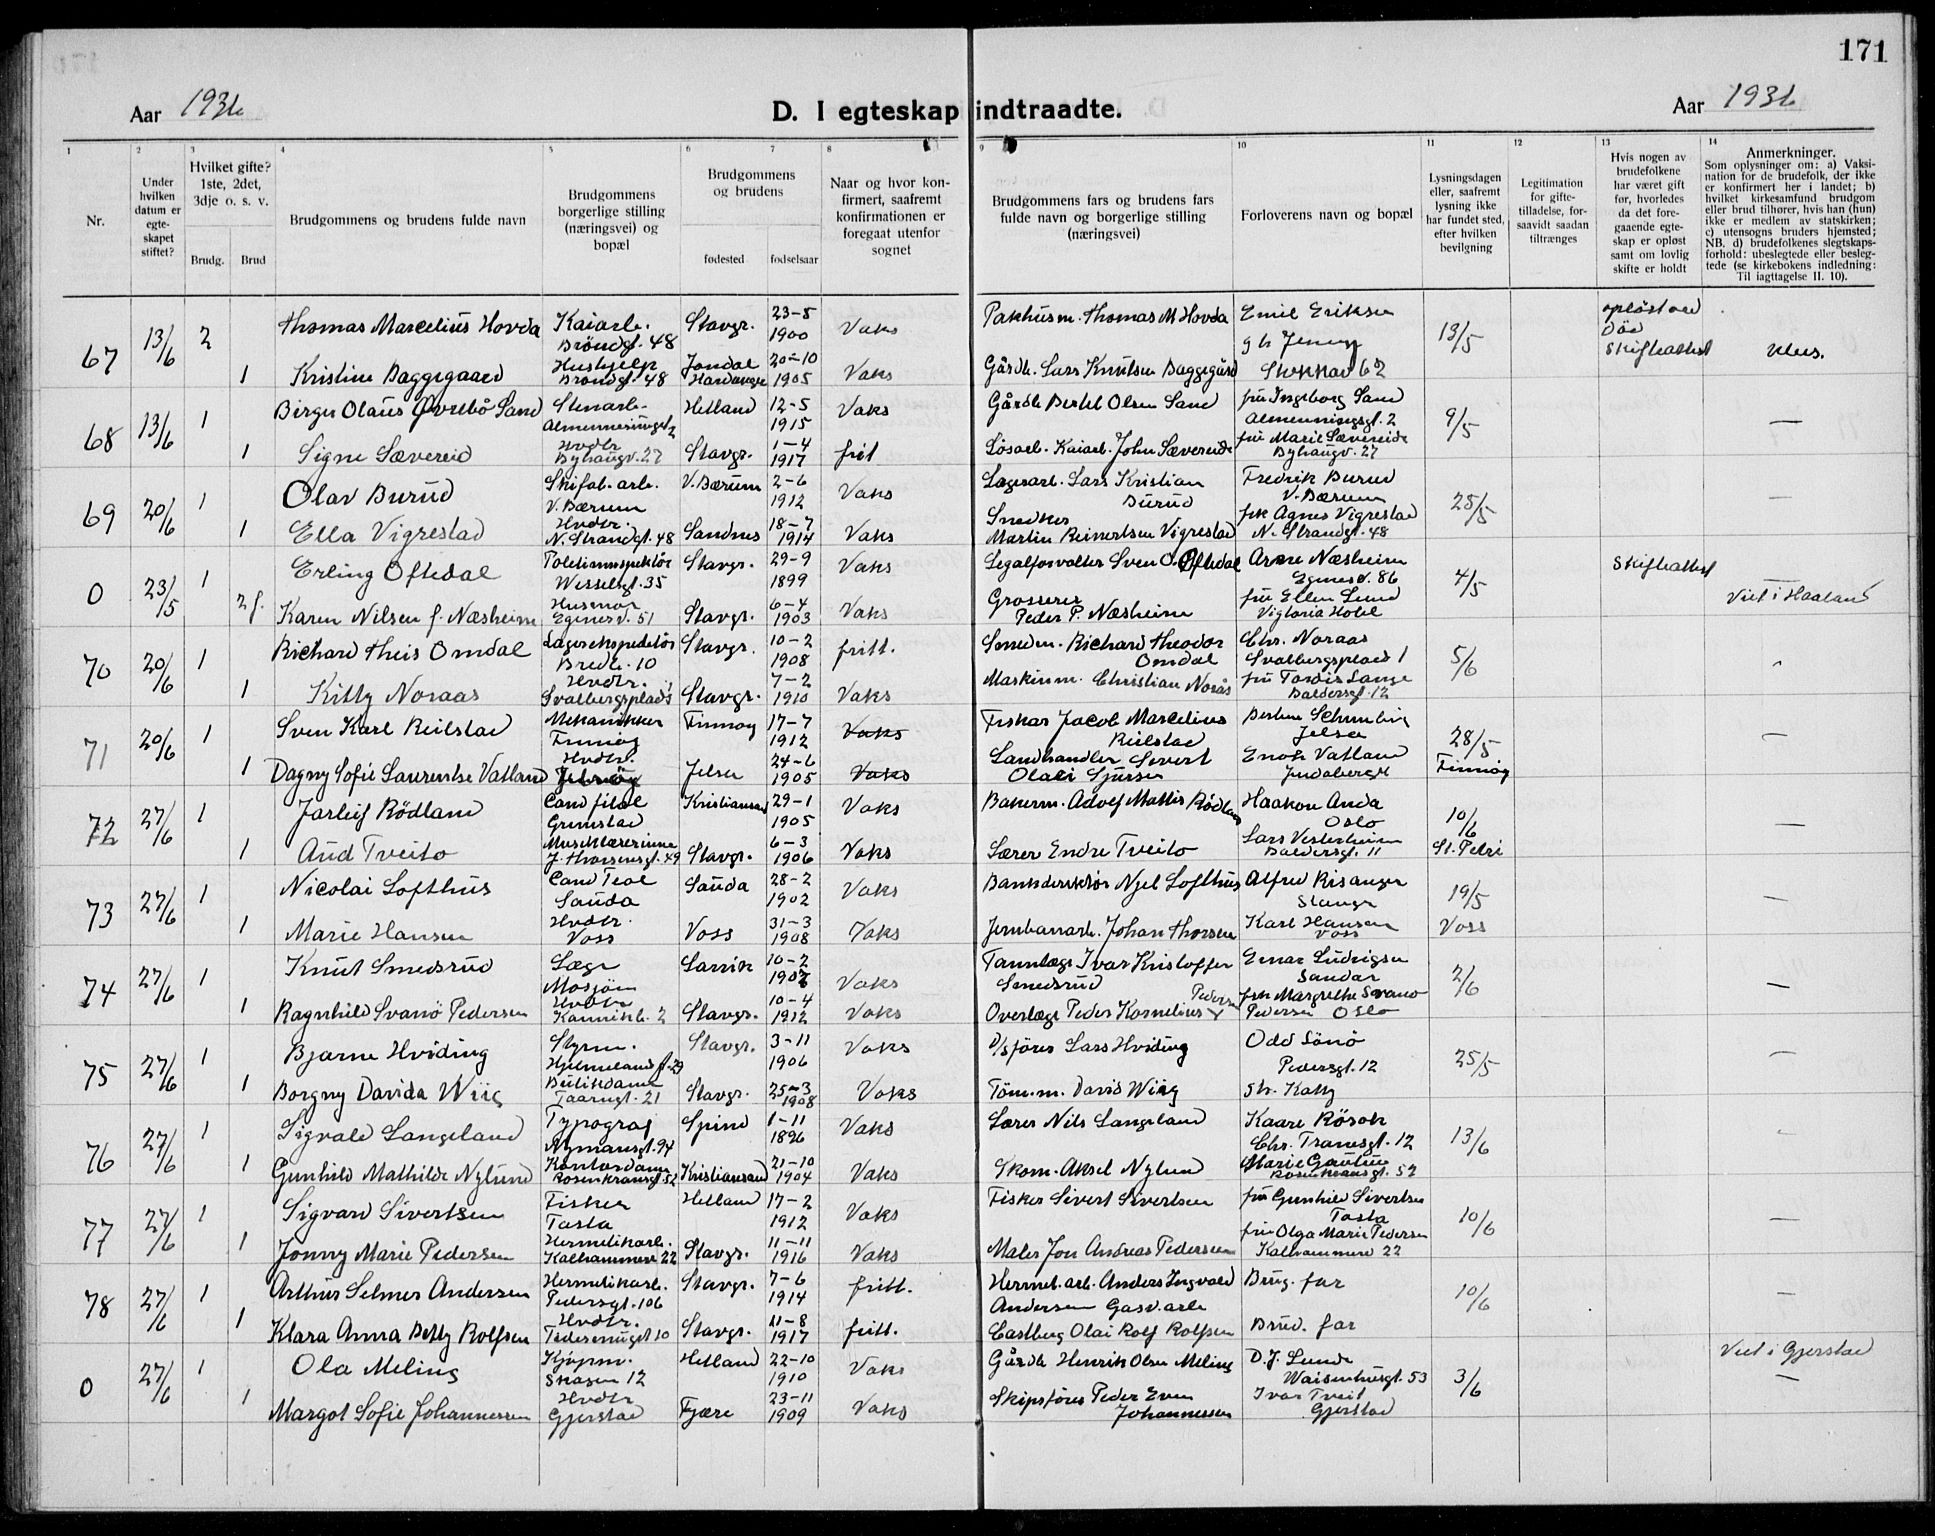 171
Aar 1936
D. I egteskap indtraadte.
Aar 1936
1 2 3 4 5 6 7 8 9 10 11 12 13 14
Nr.
Under hvilken datum er egteskapet stiftet?
Hvilket gifte? 1ste, 2det, 3dje o. s. v.
Brudg. Brud
Brudgommens og brudens fulde navn
Brudgommens borgerlige stilling (næringsvei) og bopæl
Brudgommens og brudens
fødested fødselsaar
Naar og hvor konfirmert, saafremt konfirmationen er foregaat utenfor sognet
Brudgommens fars og brudens fars fulde navn og borgerlige stilling (næringsvei)
Forloverens navn og bopæl
Lysningsdagen eller, saafremt lysning ikke har fundet sted, efter hvilken bevilgning
Legitimation for giftetilladelse, forsaavidt saadan tiltrænges
Hvis nogen av brudefolkene har været gift før, hvorledes da det foregaaende egteskap er opløst samt om lovlig skifte er holdt
Anmerkninger.
Som oplysninger om: a) Vaksination for de brudefolk, der ikke er konfirmert her i landet; b) hvilket kirkesamfund brudgom eller brud tilhører, hvis han (hun) ikke er medlem av statskirken; c) utensogns bruders hjemsted; NB. d) brudefolkenes slegtskapsforhold: ubeslegtede eller beslegtede (se kirkebokens indledning: Til iagttagelse II. 10).
67 13/6 2 Thomas Marcelius Hovda Kaiarb. Bröndgt. 48 Stavgr. 23-5 1900 Vaks Pakhusm. Thomas M Hovda Emil Eriksen 13/5 opløst ved Död Skifteattest
1 Kristine Baggegaard Hushjelp Bröndgt. 48 Jondal Hardanger 20-10 1905 Vaks Gårdb. Lars Knutsen Baggegård Stokkav 62
68 13/6 1 Birger Olaus Øvrebö Sand Stenarb. Hetland 12-5 1915 Vaks Gårdb Bertel Olsen Sand fru Ingeborg Sand Almenningsgt. 2 9/5 —
1 Signe Sævereid Hvdtr Byhaugv. 27 Stavgr. 1-4 1917 frit Lösarb. Kaiarb. John Sævereide fru Marie Sævereide Byhaugv. 27
69 20/6 1 Olav Burud Skifab. arb. V. Bærum V. Bærum 2-6 1912 Vaks Lagerarb. Lars Kristian Burud Fredrik Burud V. Bærum 25/5 —
1 Ella Vigrestad Hvdtr. N. Strandgt. 48 Sandnes 18-7 1914 Vaks Snedker Martin Reinertsen Vigrestad frk Agnes Vigrestad N. Strandgt. 48
0 23/5 1 Erling Oftedal Politiinspektör Wesselsgt. 35 Stavgr. 29-9 1899 Vaks Legatforvalter Sven O. Oftedal Arne Næsheim Egenesv. 86 4/5 Skifteattest Viet i Haaland
2 f. Karen Nilsen f. Næsheim Husmor Egenesv. 51 Stavgr. 6-4 1903 Vaks Grosserer Peder P. Næsheim fru Ellen Lund Viktoria Hotel
70 20/6 1 Richard Theis Omdal Lagerekspeditör Bredb. 10 Stavgr. 10-2 1908 fritt. Smedm. Richard Theodor Omdal Chr. Noraas Svalbergsplads 1 5/6
1 Kitty Noraas Hvdtr. Svalbergsplads 1 Stavgr. 7-2 1910 Vaks Maskinm. Christian Norås fru Tordis Lange Baldersgt. 12
71 20/6 1 Sven Karl Reilstad Mekanikker Finnøy Finnøy 17-7 1912 Vaks Fisker Jacob Marselius Reilstad Jelsa 28/5 Finnøy —
1 Dagny Sofie Laurentse Vatland Hvdtr. Jelsa 24-6 1905 Vaks Landhandler Severt Olai Sjursen Enok Vatland
72 27/6 1 Jarleif Rödland Cand filol Grimstad Kristiansand 29-1 1905 Vaks Bakerm. Adolf Mattis Rödland Haakon Anda Oslo 10/6 St. Petri —
1 Aud Tveito Musiklærerinne J. Thorsensgt. 49 Stavgr. 6-3 1906 Vaks Lærer Endre Tveito Lars Vesterheim Baldersgt. 11
73 27/6 1 Nicolai Lofthus Cand Teol Sauda Sauda 28-2 1902 Vaks Bankdirektör Njel Lofthus Alfred Risanger Stange 19/5 Voss —
1 Marie Hansen Hvdtr. Voss Voss 31-3 1908 Vaks Jernbanarb. Johan Thorsen Karl Hansen Voss
74 27/6 1 Knut Smedsrud Læge Mosjøen Larvik 10-2 1907 Vaks Tannlæge Ivar Kristoffer Smedsrud Einar Ludvigsen Sandar 2/6 —
1 Ragnhild Svanö Pedersen Hvdtr Kannikb. 2 Stavgr. 10-4 1912 Vaks Overlæge Peder Kornelius Pedersen frk Margrethe Svanö Pedersen Oslo
75 27/6 1 Bjarne Hviding Styrm. Hjelmelandsgt. 29 Stavgr. 3-11 1906 Vaks D/sförer Lars Hviding Odd Sönö Pedersgt. 12 25/5 —
1 Borgny Davida Wiig Butikdame Taarngt. 21 Stavgr. 25-3 1908 Vaks Töm.m. David Wiig
76 27/6 1 Sigvald Langeland Typograf Nymansgt. 94 Spind 1-11 1896 Vaks Lærer Nils Langeland Kaare Rösok Chr. Tranesgt. 12 13/6
1 Gunhild Mathilde Nylund Kontordame Rosenkransgt. 52 Kristiansand 21-10 1904 Vaks Skom. Aksel Nylund Marie Gautun Rosenkransgt. 52
77 27/6 1 Sigvard Sivertsen Fisker Tasta Hetland 17-2 1912 Vaks Fisker Sivert Sivertsen fru Gunhild Sivertsen Tasta 10/6 —
1 Jonny Marie Pedersen Hermetikarb. Kalhammerv 22 Stavgr. 11-11 1916 Vaks Maler Jon Andreas Pedersen fru Olga Marie Pedersen Kalhammerv 22
78 27/6 1 Arthur Selmer Andersen Hermetikarb. Pedersgt. 106 Stavgr. 7-6 1914 fritt. Hermet. arb. Anders Ingvald Andersen Gasv.arb Brug. far 10/6 —
1 Klara Anna Betty Rolfsen Hvdtr. Stavgr. 11-8 1917 fritt. Castberg Olai Rolf Rolfsen Brud. far
0 27/6 1 Ola Meling Kjøpm. Skagen 12 Hetland 22-10 1910 Vaks Gårdb Henrik Olsen Meling D. J. Lunde Waisenhusgt. 53 3/6 Viet i Gjerstad —
1 Margot Sofie Johannessen Hvdtr Gjerstad Fjære 23-11 1909 Vaks Skipsförer Peder Even Johannessen Ivar Tveit Gjerstad